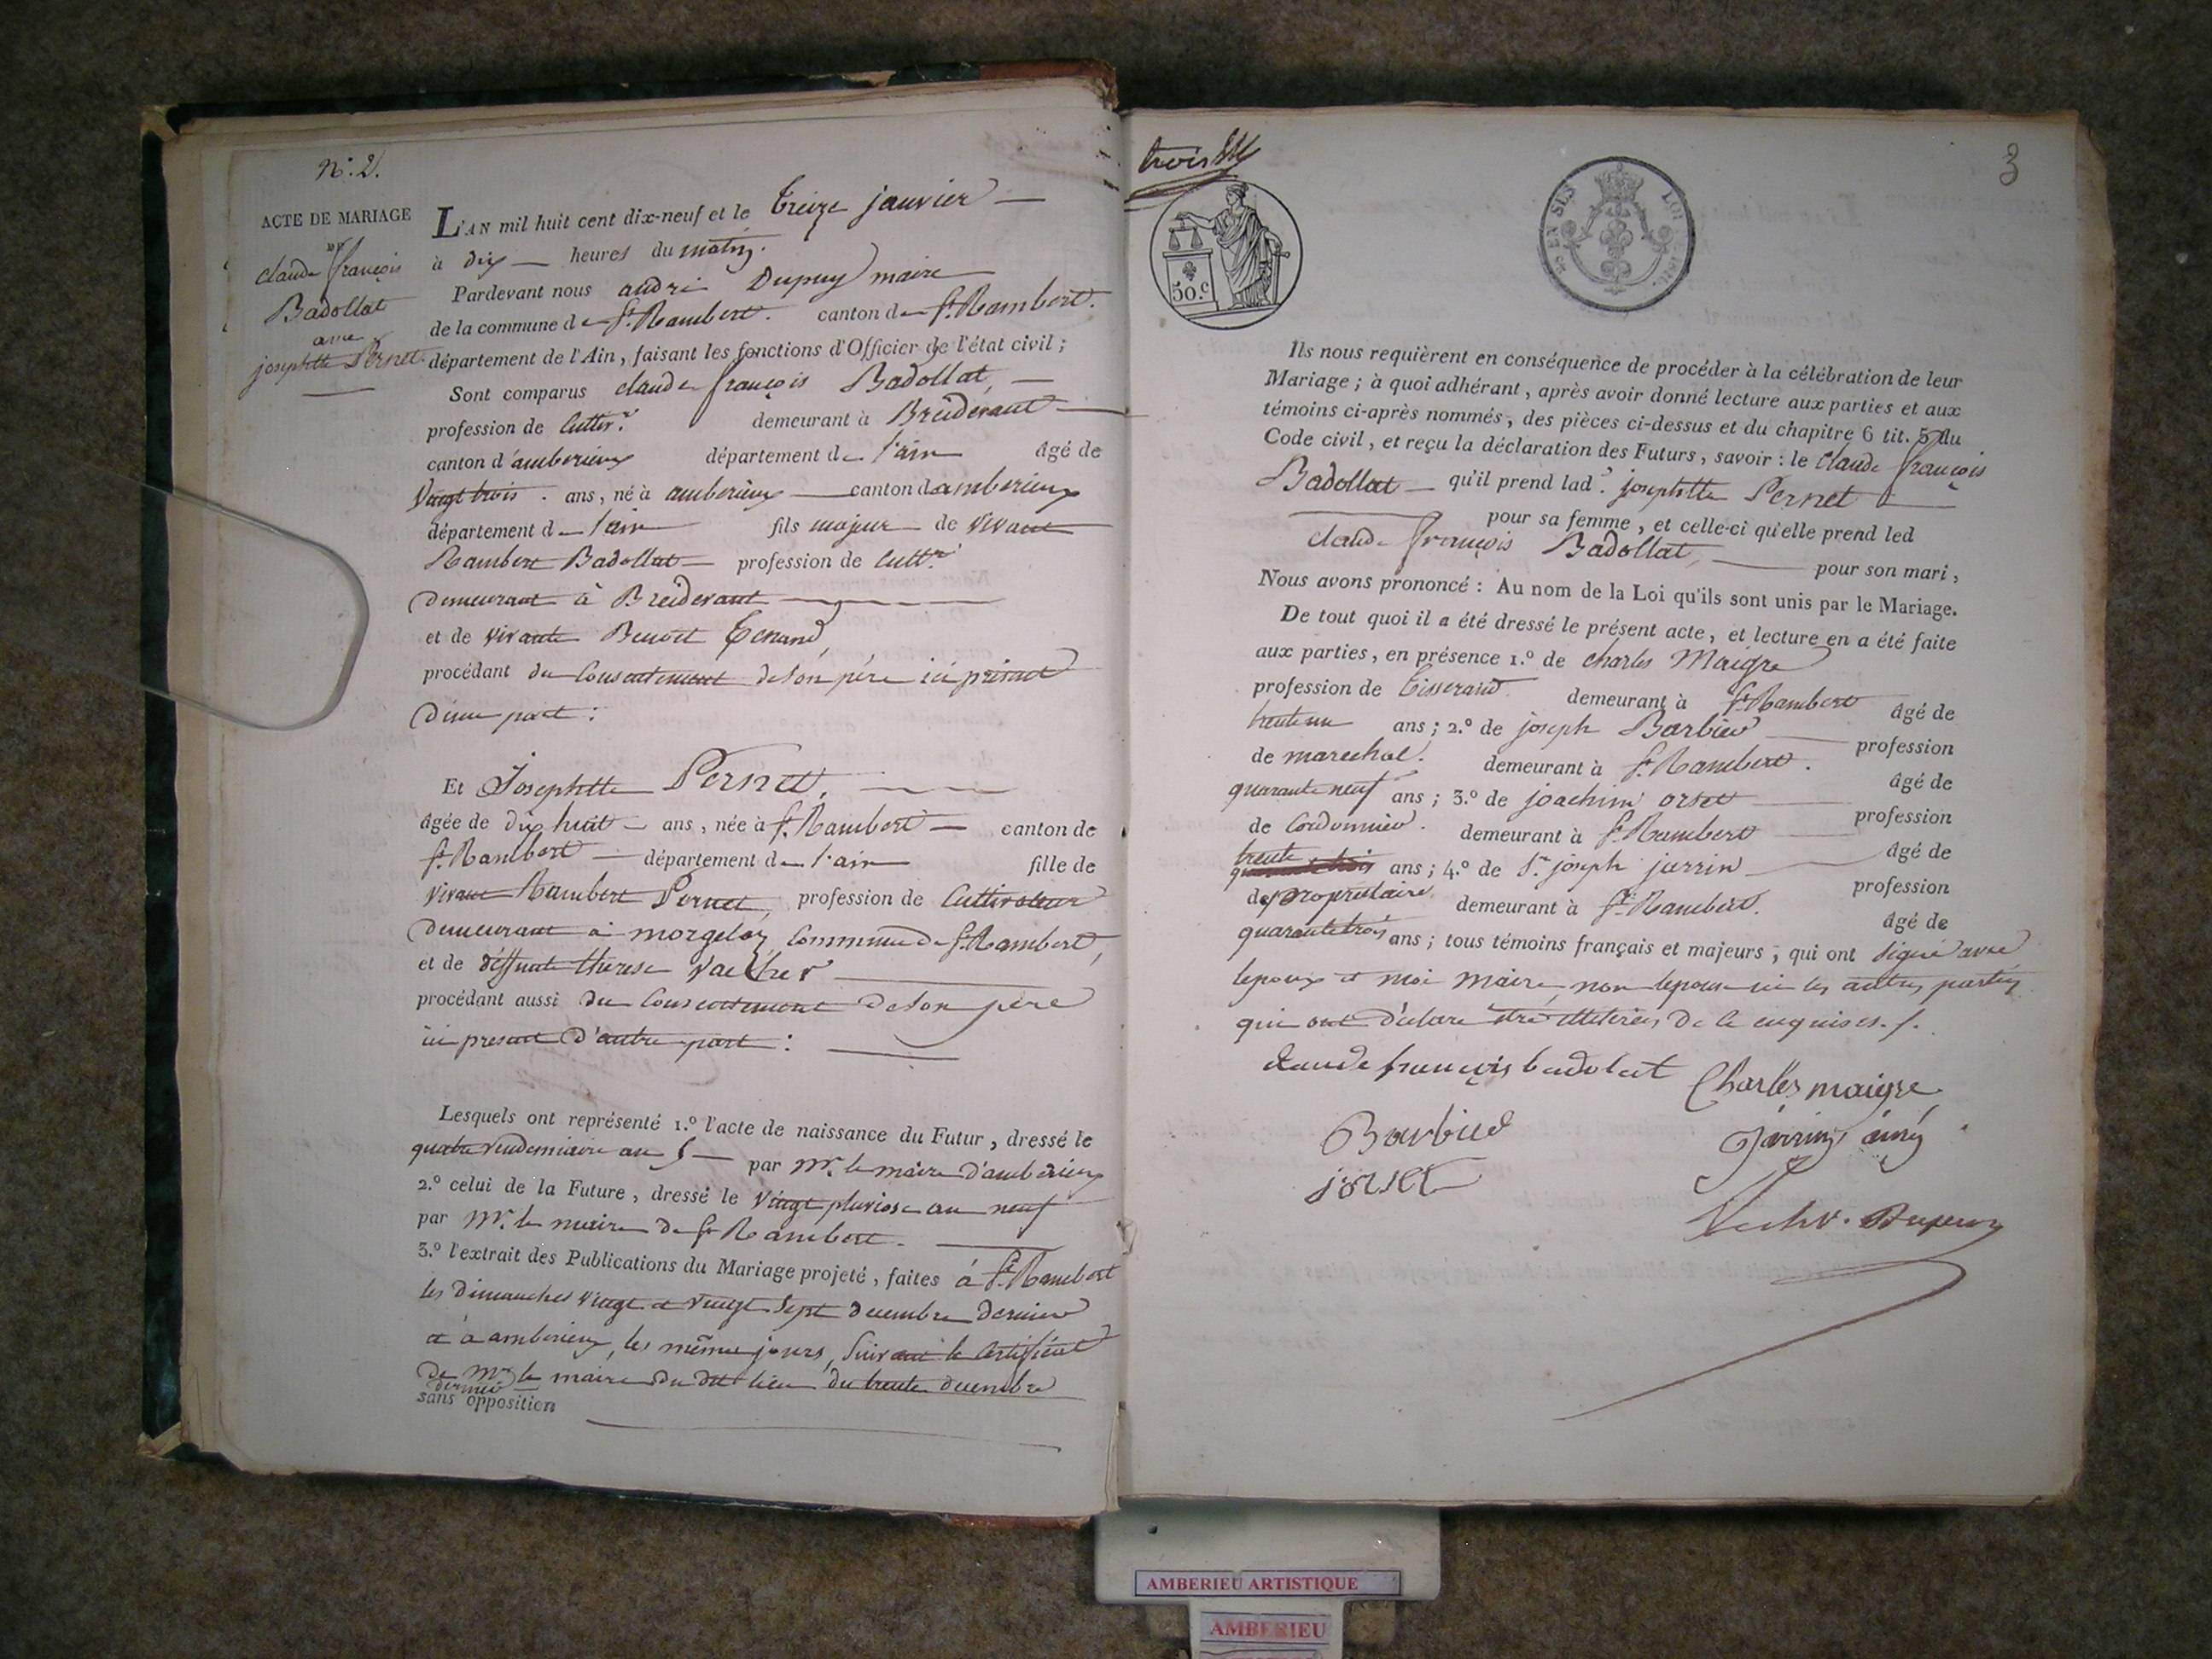 N.º 2.
ACTE DE MARIAGE
DE
claude françois
Badollat
avec
josephtte Pernet
L'AN mil huit cent dix-neuf et le treize janvier
à dix heures du matin.
Pardevant nous andré Dupuy maire
de la commune de St. Rambert. canton de St. Rambert.
département de l'Ain, faisant les fonctions d'Officier de l'état civil;
Sont comparus claude françois Badollat,
profession de cultivr. demeurant à Breidevant
canton d'amberieux département de l'ain âgé de
vingt trois. ans, né à amberieux canton d'amberieux
département de l'ain fils majeur de vivant
Rambert Badollat profession de cultr.
demeurant à Breidevant
et de vivante Benoit Tenand,
procédant du consentement de son père ici présent
d'une part:
Et Josephtte Pernet,
âgée de dix huit ans, née à St. Rambert canton de
St. Rambert département de l'ain fille de
vivant Rambert Pernet, profession de cultivateur
demeurant à morgelaz, commune de St. Rambert,
et de deffunte therese
procédant aussi du consentement de son père
ici present d'autre part:
Lesquels ont représenté 1.º l'acte de naissance du Futur, dressé le
quatre vendemiaire an 5 par Mr. le maire d'amberieux
2.º celui de la Future, dressé le vingt pluviose an neuf
par Mr. le maire de St Rambert.
3.º l'extrait des Publications du Mariage projeté, faites à St. Rambert
les dimanches vingt et vingt sept decembre dernier
et à amberieux, les même jours, suivant le certificat
de Mr. le maire du dit lieu du trente decembre
dernier
sans opposition
trois
50.c
3
Ils nous requièrent en conséquence de procéder à la célébration de leur
Mariage; à quoi adhérant, après avoir donné lecture aux parties et aux
témoins ci-après nommés, des pièces ci-dessus et du chapitre 6 tit. 5 du
Code civil, et reçu la déclaration des Futurs, savoir: le claude françois
Badollat qu'il prend lad.e josephtte Pernet
pour sa femme, et celle-ci qu'elle prend led
claude françois Badollat, pour son mari,
Nous avons prononcé: Au nom de la Loi qu'ils sont unis par le Mariage.
De tout quoi il a été dressé le présent acte, et lecture en a été faite
aux parties, en présence 1.º de charles Maigre
profession de tisserand demeurant à St. Rambert âgé de
trente un ans; 2.º de joseph Barbier profession
de marechal. demeurant à St. Rambert. âgé de
quarante neuf ans; 3.º de joachim orset profession
de cordonnier. demeurant à St. Rambert âgé de
trente ans; 4.º de Sr. joseph jarrin profession
de proprietaire demeurant à St. Rambert. âgé de
quarante trois ans; tous témoins français et majeurs, qui ont signé avec
lepoux et moi maire, non lepouse ni les autres parties
qui ont déclaré être illeterés, de ce enquis es./.
claude françois badolat
Charles maigre
Barbier
Jarrin ainé
j orset
Dupuy
AMBERIEU ARTISTIQUE
AMBERIEU